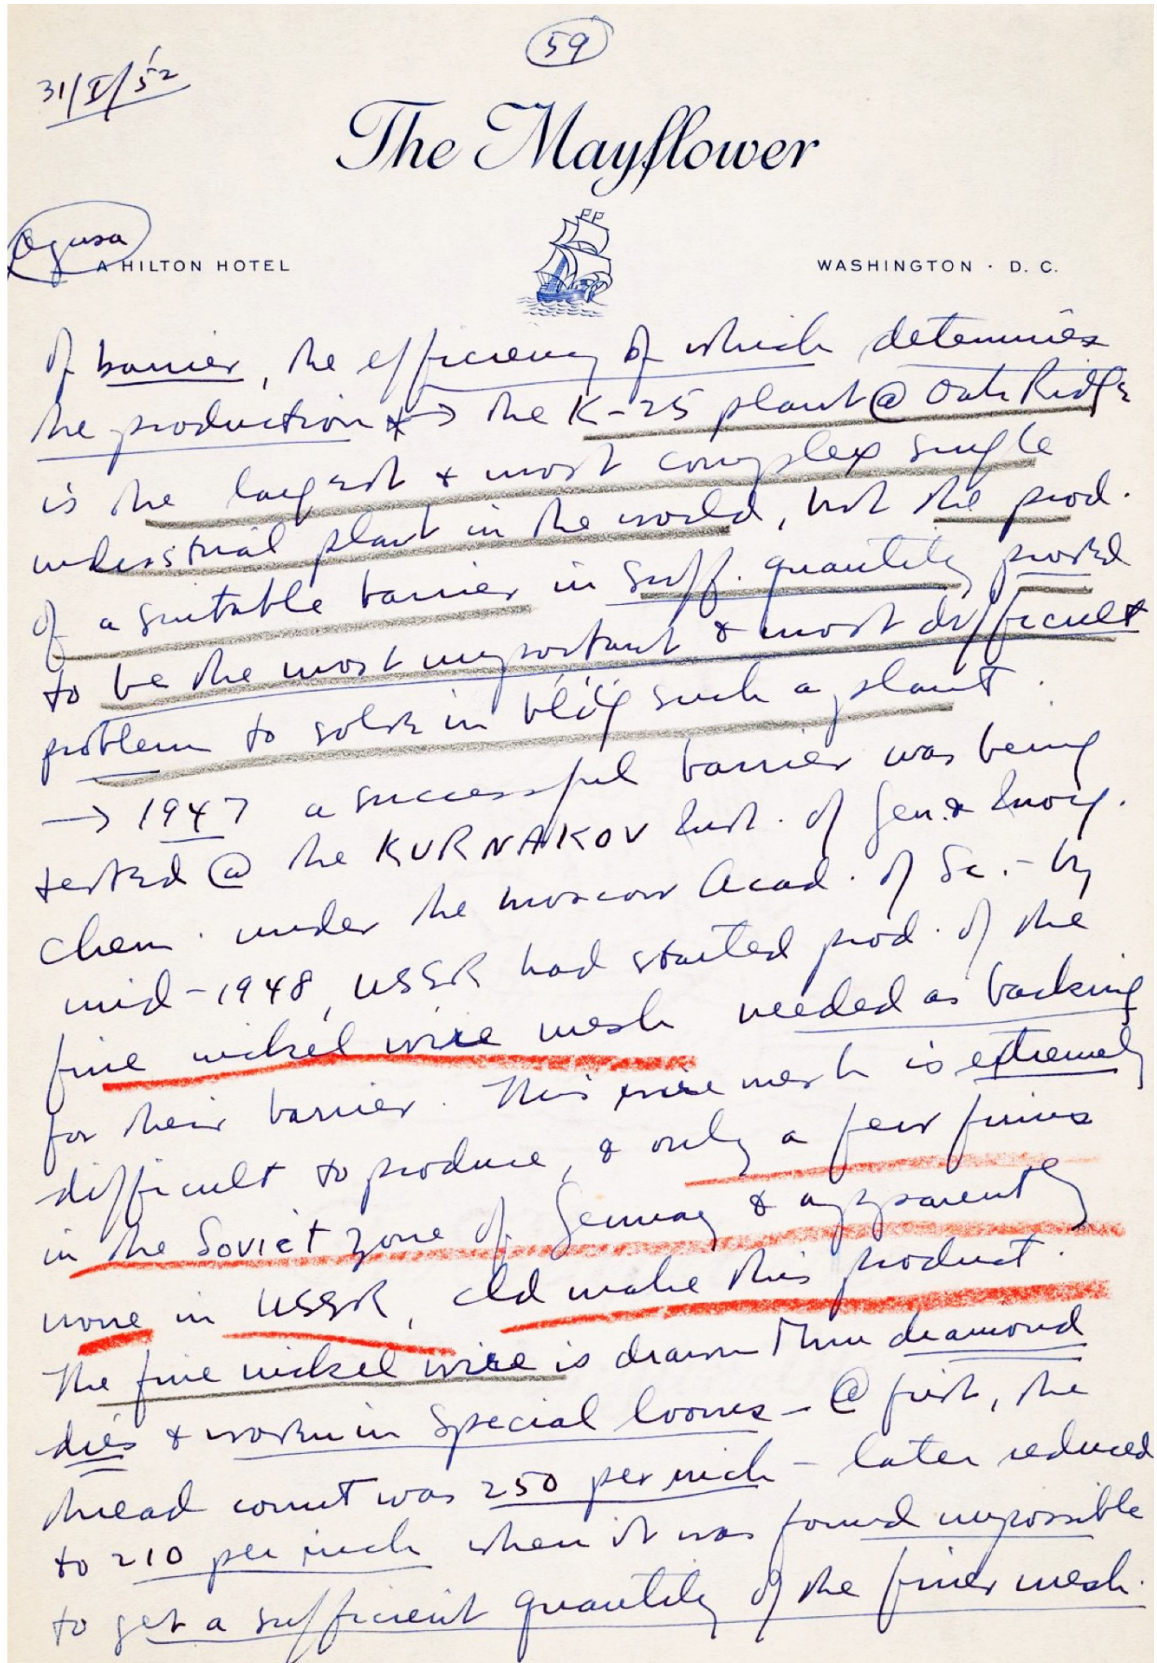 59
31/I/52
The Mayflower
Ogusa
A HILTON HOTEL
WASHINGTON · D. C.
of barrier, the efficiency of which determines
the production → the K-25 plant @ Oak Ridge
is the largest & most complex single
industrial plant in the world, but the prod.
of a suitable barrier in suff. quantity proved
to be the most important & most difficult
problem to solve in bldg such a plant.
→ 1947 a successful barrier was being
tested @ the KURNAKOV Inst. of Gen. & Inorg.
Chem. under the Moscow Acad. of Sc. - by
mid-1948, USSR had started prod. of the
fine nickel wire mesh needed as backing
for their barrier. This wire mesh is extremely
difficult to produce, & only a few firms
in the Soviet zone of Germany & apparently
none in USSR, cld make this product.
The fine nickel wire is drawn thru diamond
dies & woven in special looms - @ first, the
thread count was 250 per inch - later reduced
to 210 per inch when it was found impossible
to get a sufficient quantity of the finer mesh.